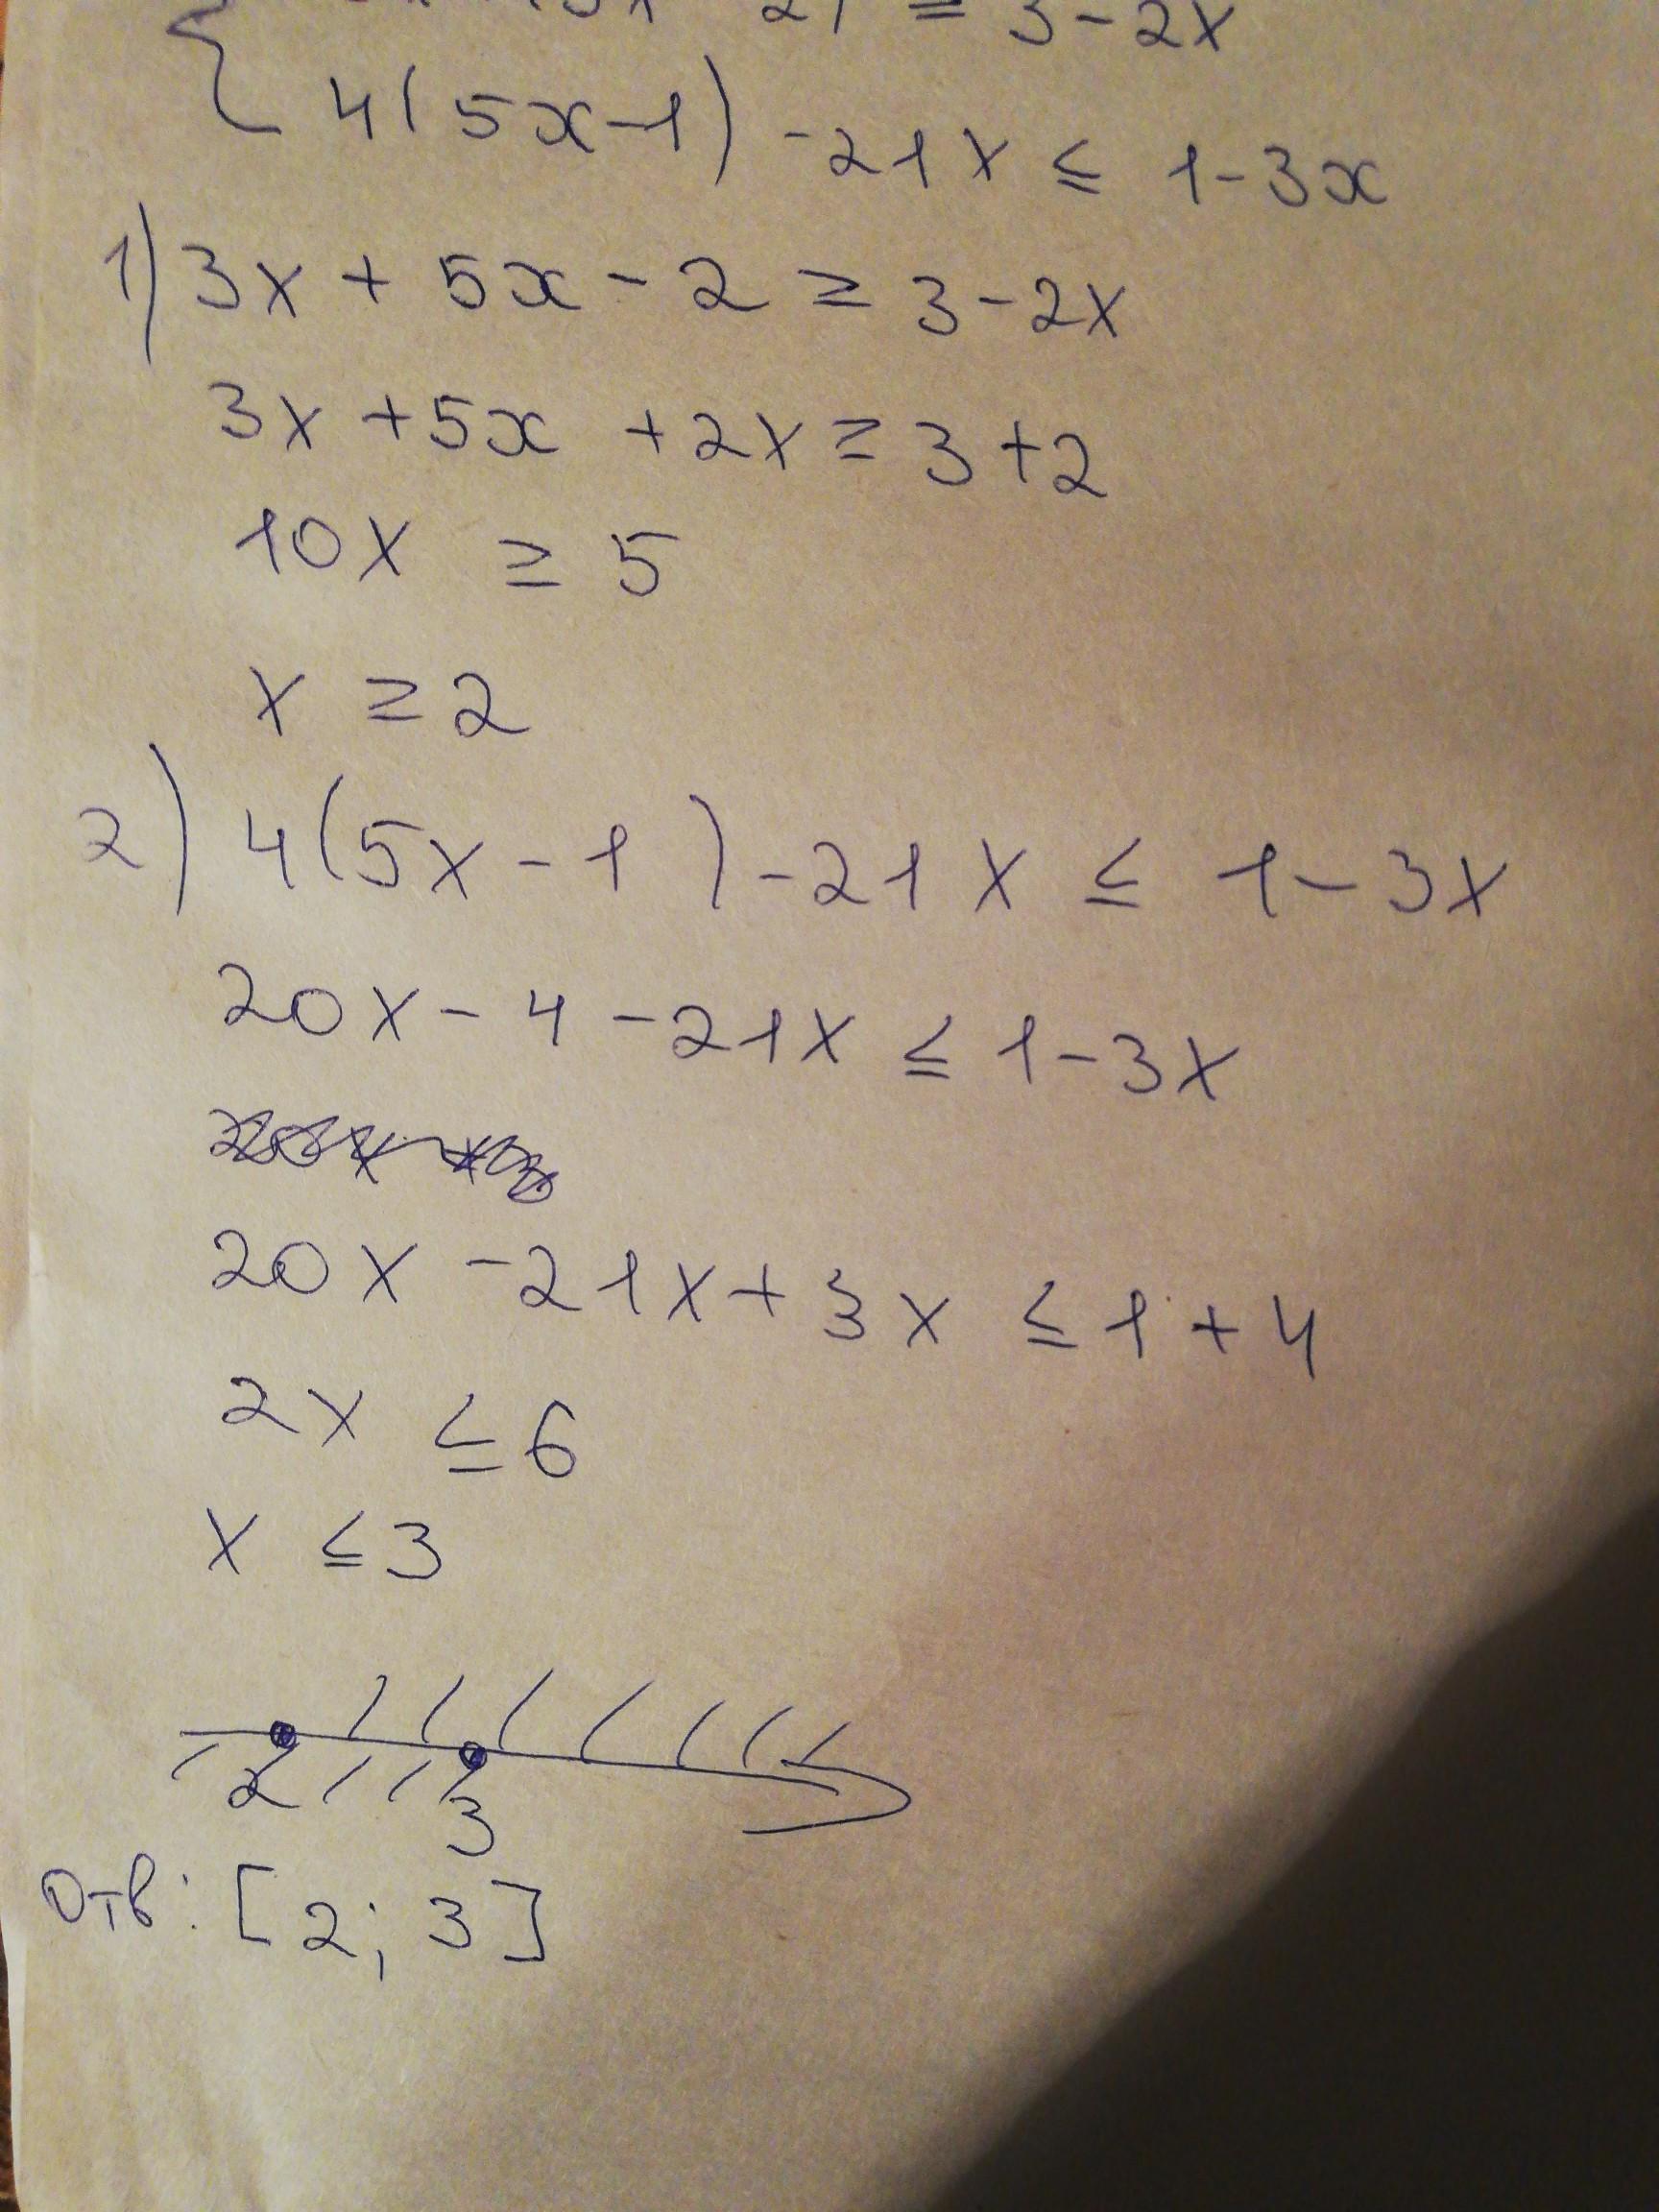 = 3 - 2x
{ 4(5x-1) - 21x ≤ 1 - 3x
1) 3x + 5x - 2 ≥ 3 - 2x
3x + 5x + 2x ≥ 3 + 2
10x ≥ 5
x ≥ 2
2) 4(5x - 1) - 21x ≤ 1 - 3x
20x - 4 - 21x ≤ 1 - 3x
20x - 21x + 3x ≤ 1 + 4
2x ≤ 6
x ≤ 3
2 3
Отв: [2; 3]